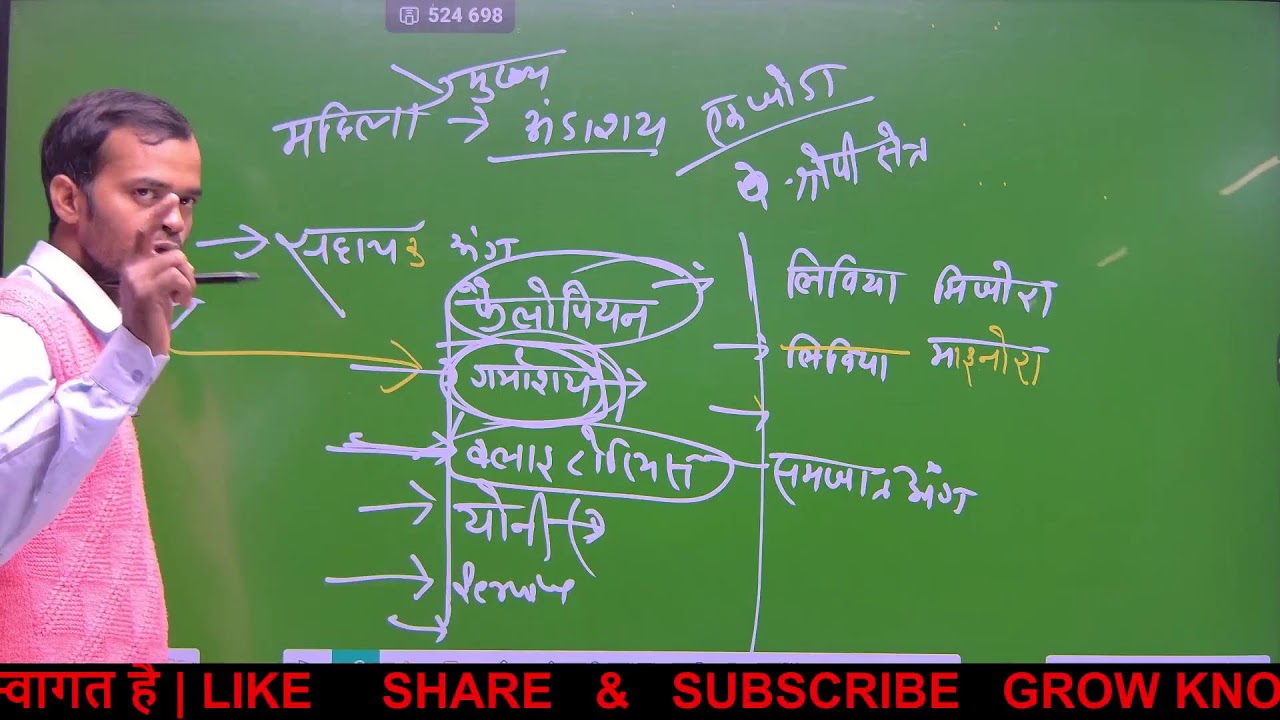 524 698
मुख्य
महिला → अंडाशय एक जोडा
श्रोणी क्षेत्र
→ सहायक अंग
फेलोपियन
गर्भाशय
क्लाइटोरियस
योनी
लिविया मिजोरा
लिविया माइनोरा
समजात अंग
स्वागत है | LIKE SHARE & SUBSCRIBE GROW KNO